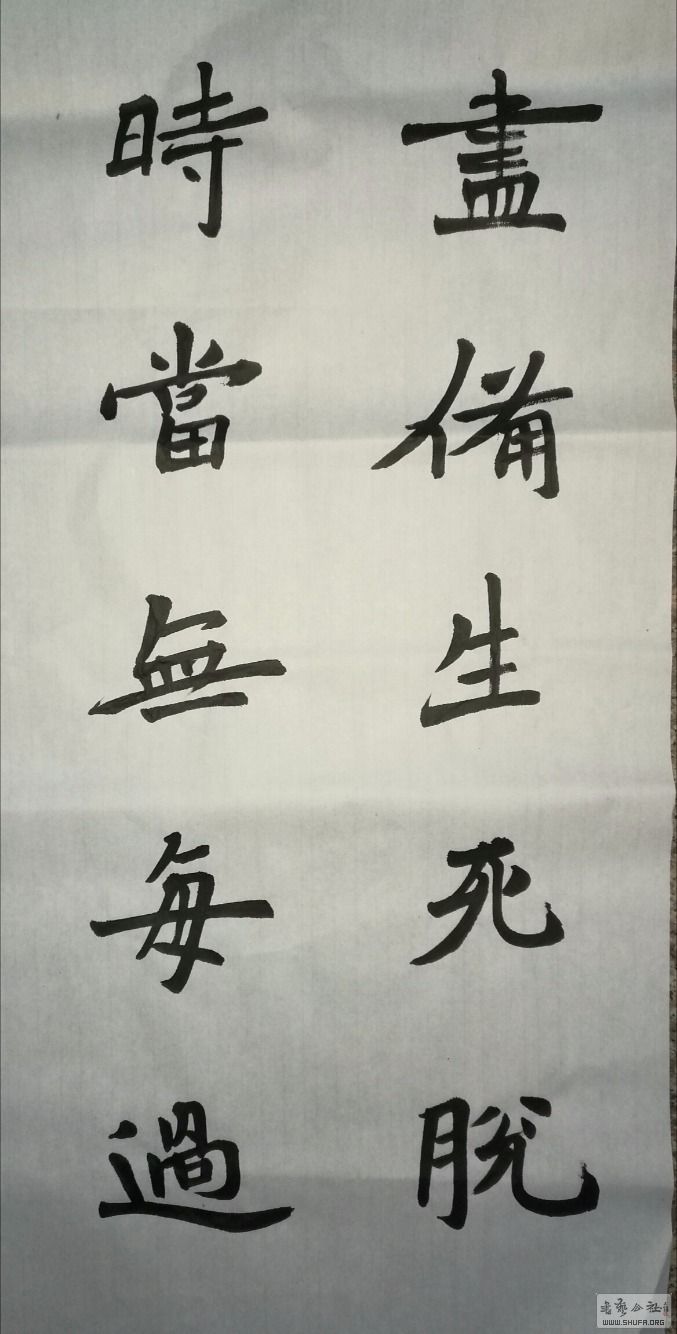 盡備生死脫
時當無每過
書藝公社
WWW.SHUFA.ORG